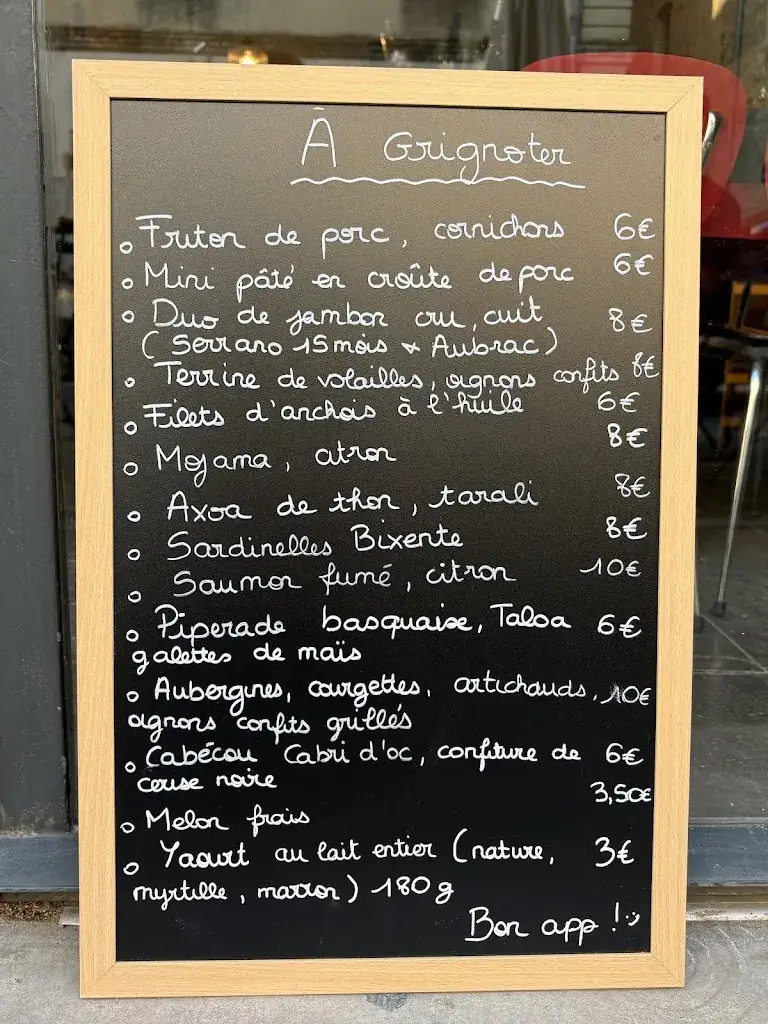 À Grignoter
Friton de porc, cornichons 6€
Mini pâté en croûte de porc 6€
Duo de jambon cru, cuit 8€
(Serrano 15 mois & Aubrac)
Terrine de volailles, oignons confits 8€
Filets d'anchois à l'huile 6€
Mojama, citron 8€
Axoa de thon, tarali 8€
Sardinelles Bixente 8€
Saumon fumé, citron 10€
Piperade basquaise, Taloa 6€
galettes de maïs
Aubergines, courgettes, artichauds, 10€
oignons confits grillés
Cabécou Cabri d'oc, confiture de 6€
cerise noire
Melon frais 3,50€
Yaourt au lait entier (nature, 3€
myrtille, marron) 180 g
Bon app !